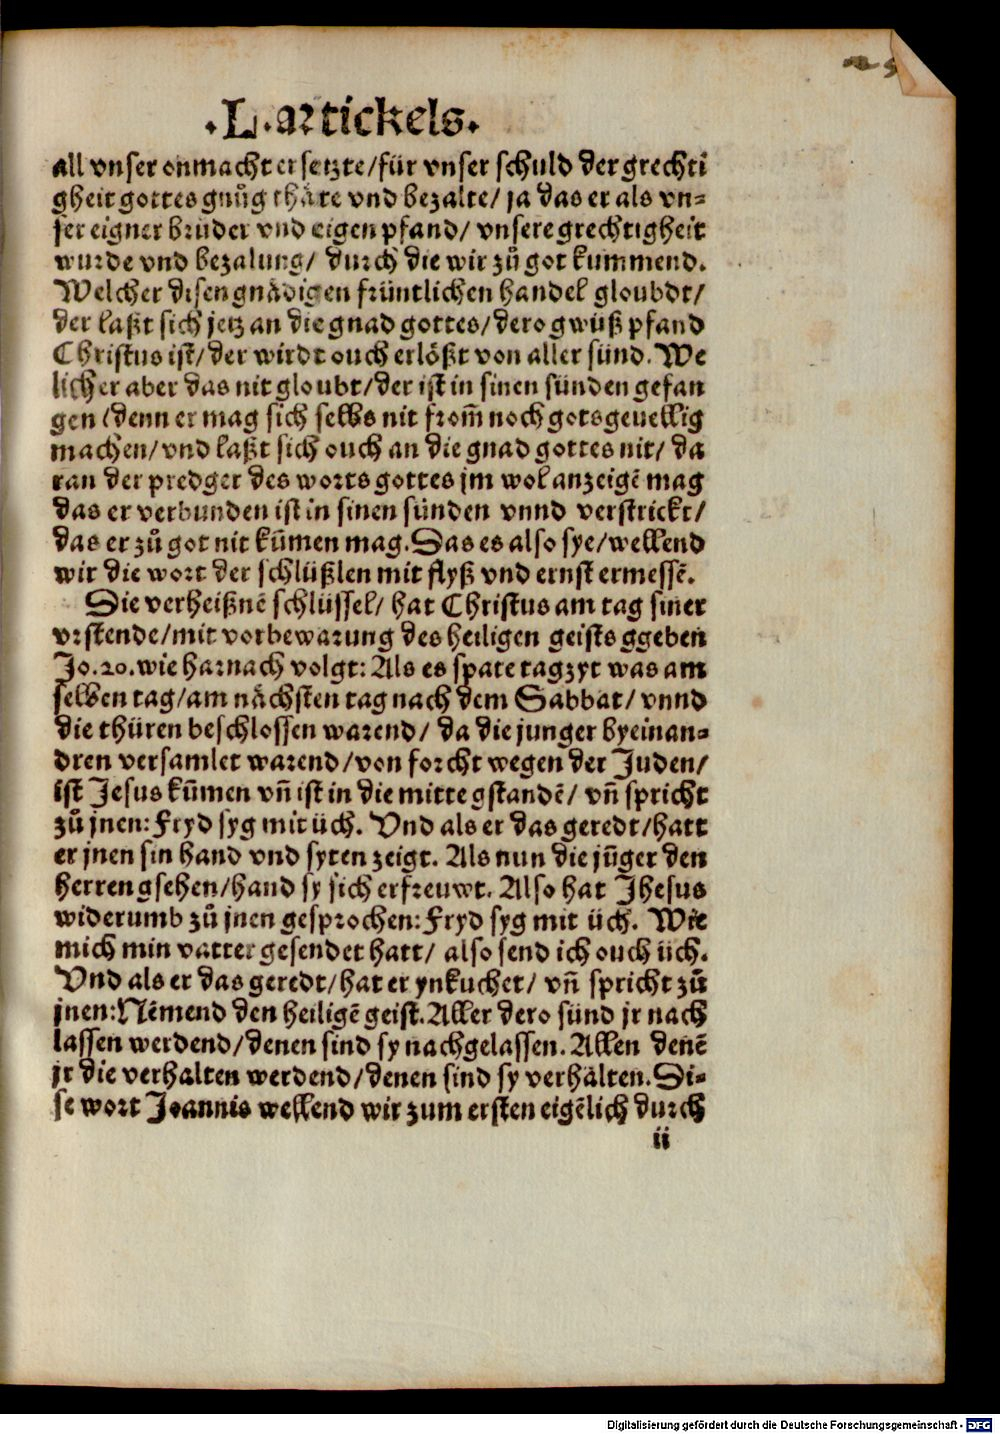 .L.artickels.
all vnser onmacht ersetzte/für vnser schuld der grechti
gheit gottes gnůg thäte vnd bezalte/ ja das er als vn⸗
ser eigner brůder vnd eigen pfand/ vnsere grechtigheit
wurde vnd bezalung/ durch die wir zů got kummend.
Welcher disen gnädigen früntlichen handel gloubdt/
der laßt sich jetz an die gnad gottes/dero gwüß pfand
Christus ist/der wirdt ouch erlößt von aller sünd. We
licher aber das nit gloubt/der ist in sinen sünden gefan
gen/denn er mag sich selbs nit from̄ noch gotsgeuellig
machen/vnd laßt sich ouch an die gnad gottes nit/ da
ran der predger des worts gottes jm wol anzeigē mag
das er verbunden ist in sinen sünden vnnd verstrickt/
das er zů got nit kūmen mag. Das es also sye/wellend
wir die wort der schlüßlen mit flyß vnd ernst ermessē.
Die verheißnē schlüssel/ hat Christus am tag siner
vrstende/mit vorbewarung des heiligen geists ggeben
Jo.20.wie harnach volgt: Als es spate tagzyt was am
selben tag/am nächsten tag nach dem Sabbat/ vnnd
die thüren beschlossen warend/ da die junger byeinan⸗
dren versamlet warend/von forcht wegen der Juden/
ist Jesus kūmen vn̄ ist in die mitte gstandē/ vn̄ spricht
zů jnen: Fryd syg mit üch. Vnd als er das geredt/hatt
er jnen sin hand vnd syten zeigt. Als nun die jūger den
herren gsehen/hand sy sich erfreuwt. Also hat Jhesus
widerumb zů jnen gesprochen: Fryd syg mit üch. Wie
mich min vatter gesendet hatt/ also send ich ouch üch.
Vnd als er das geredt/hat er ynkuchet/ vn̄ spricht zů
jnen: Nēmend den heiligē geist. Aller dero sünd jr nach
lassen werdend/denen sind sy nachgelassen. Allen denē
jr die verhalten werdend/denen sind sy verhalten. Di⸗
se wort Joannis wellend wir zum ersten eigēlich durch
ii
Digitalisierung gefördert durch die Deutsche Forschungsgemeinschaft - DFG